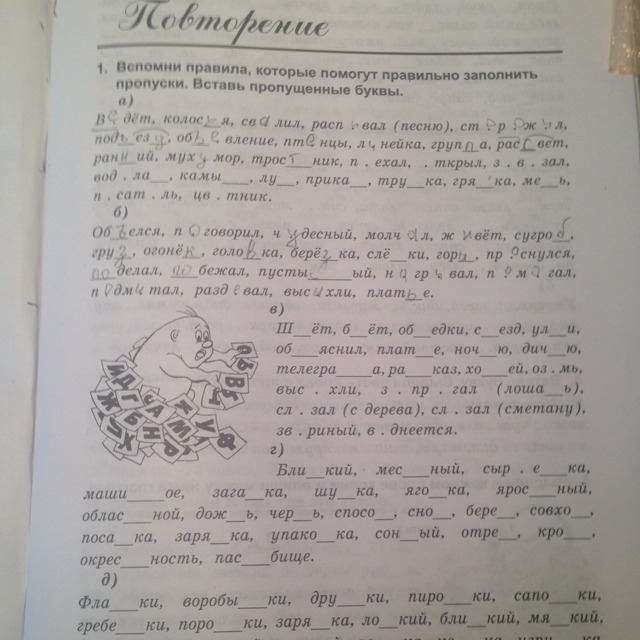 Повторение
1. Вспомни правила, которые помогут правильно заполнить
пропуски. Вставь пропущенные буквы.
а)
Ведёт, колосья, свалил, распевал (песню), сторожил,
подъезд, объявление, птенцы, линейка, группа, рассвет,
ранний, мухомор, тростник, п . ехал, . ткрыл, з . в . зал,
вод . ла__, камы___, лу__, прика__, тру__ка, гря__ка, ме__ь,
п . сат . ль, цв . тник.
б)
Объелся, поговорил, чудесный, молчал, живёт, сугроб,
груз, огонёк, головка, берёзка, слё__ки, гор__, пр . снулся,
поделал, побежал, пусты____ый, н . гр . вал, п . м . гал,
п . дм . тал, раздевал, высыхли, платье.
в)
Ш__ёт, б__ёт, об__едки, с__езд, ул__и,
об___яснил, плат__е, ноч__ю, дич__ю,
телегра____а, ра___каз, хо___ей, оз . мь,
выс . хли, з . пр . гал (лоша__ь),
сл . зал (с дерева), сл . зал (сметану),
зв . риный, в . днеется.
г)
Бли__кий, мес___ный, сыр . е___ка,
маши___ое, зага__ка, шу__ка, яго__ка, ярос___ный,
облас___ной, дож__ь, чер__ь, спосо__, сно__, бере__, совхо__,
поса__ка, заря__ка, упако__ка, сон__ый, отре__, кро___,
окрес___ность, пас__бище.
д)
Фла___ки, воробы__ки, дру___ки, пиро___ки, сапо___ки,
гребе__ки, поро__ки, заря__ка, ло__кий, бли__кий, мя__кий,